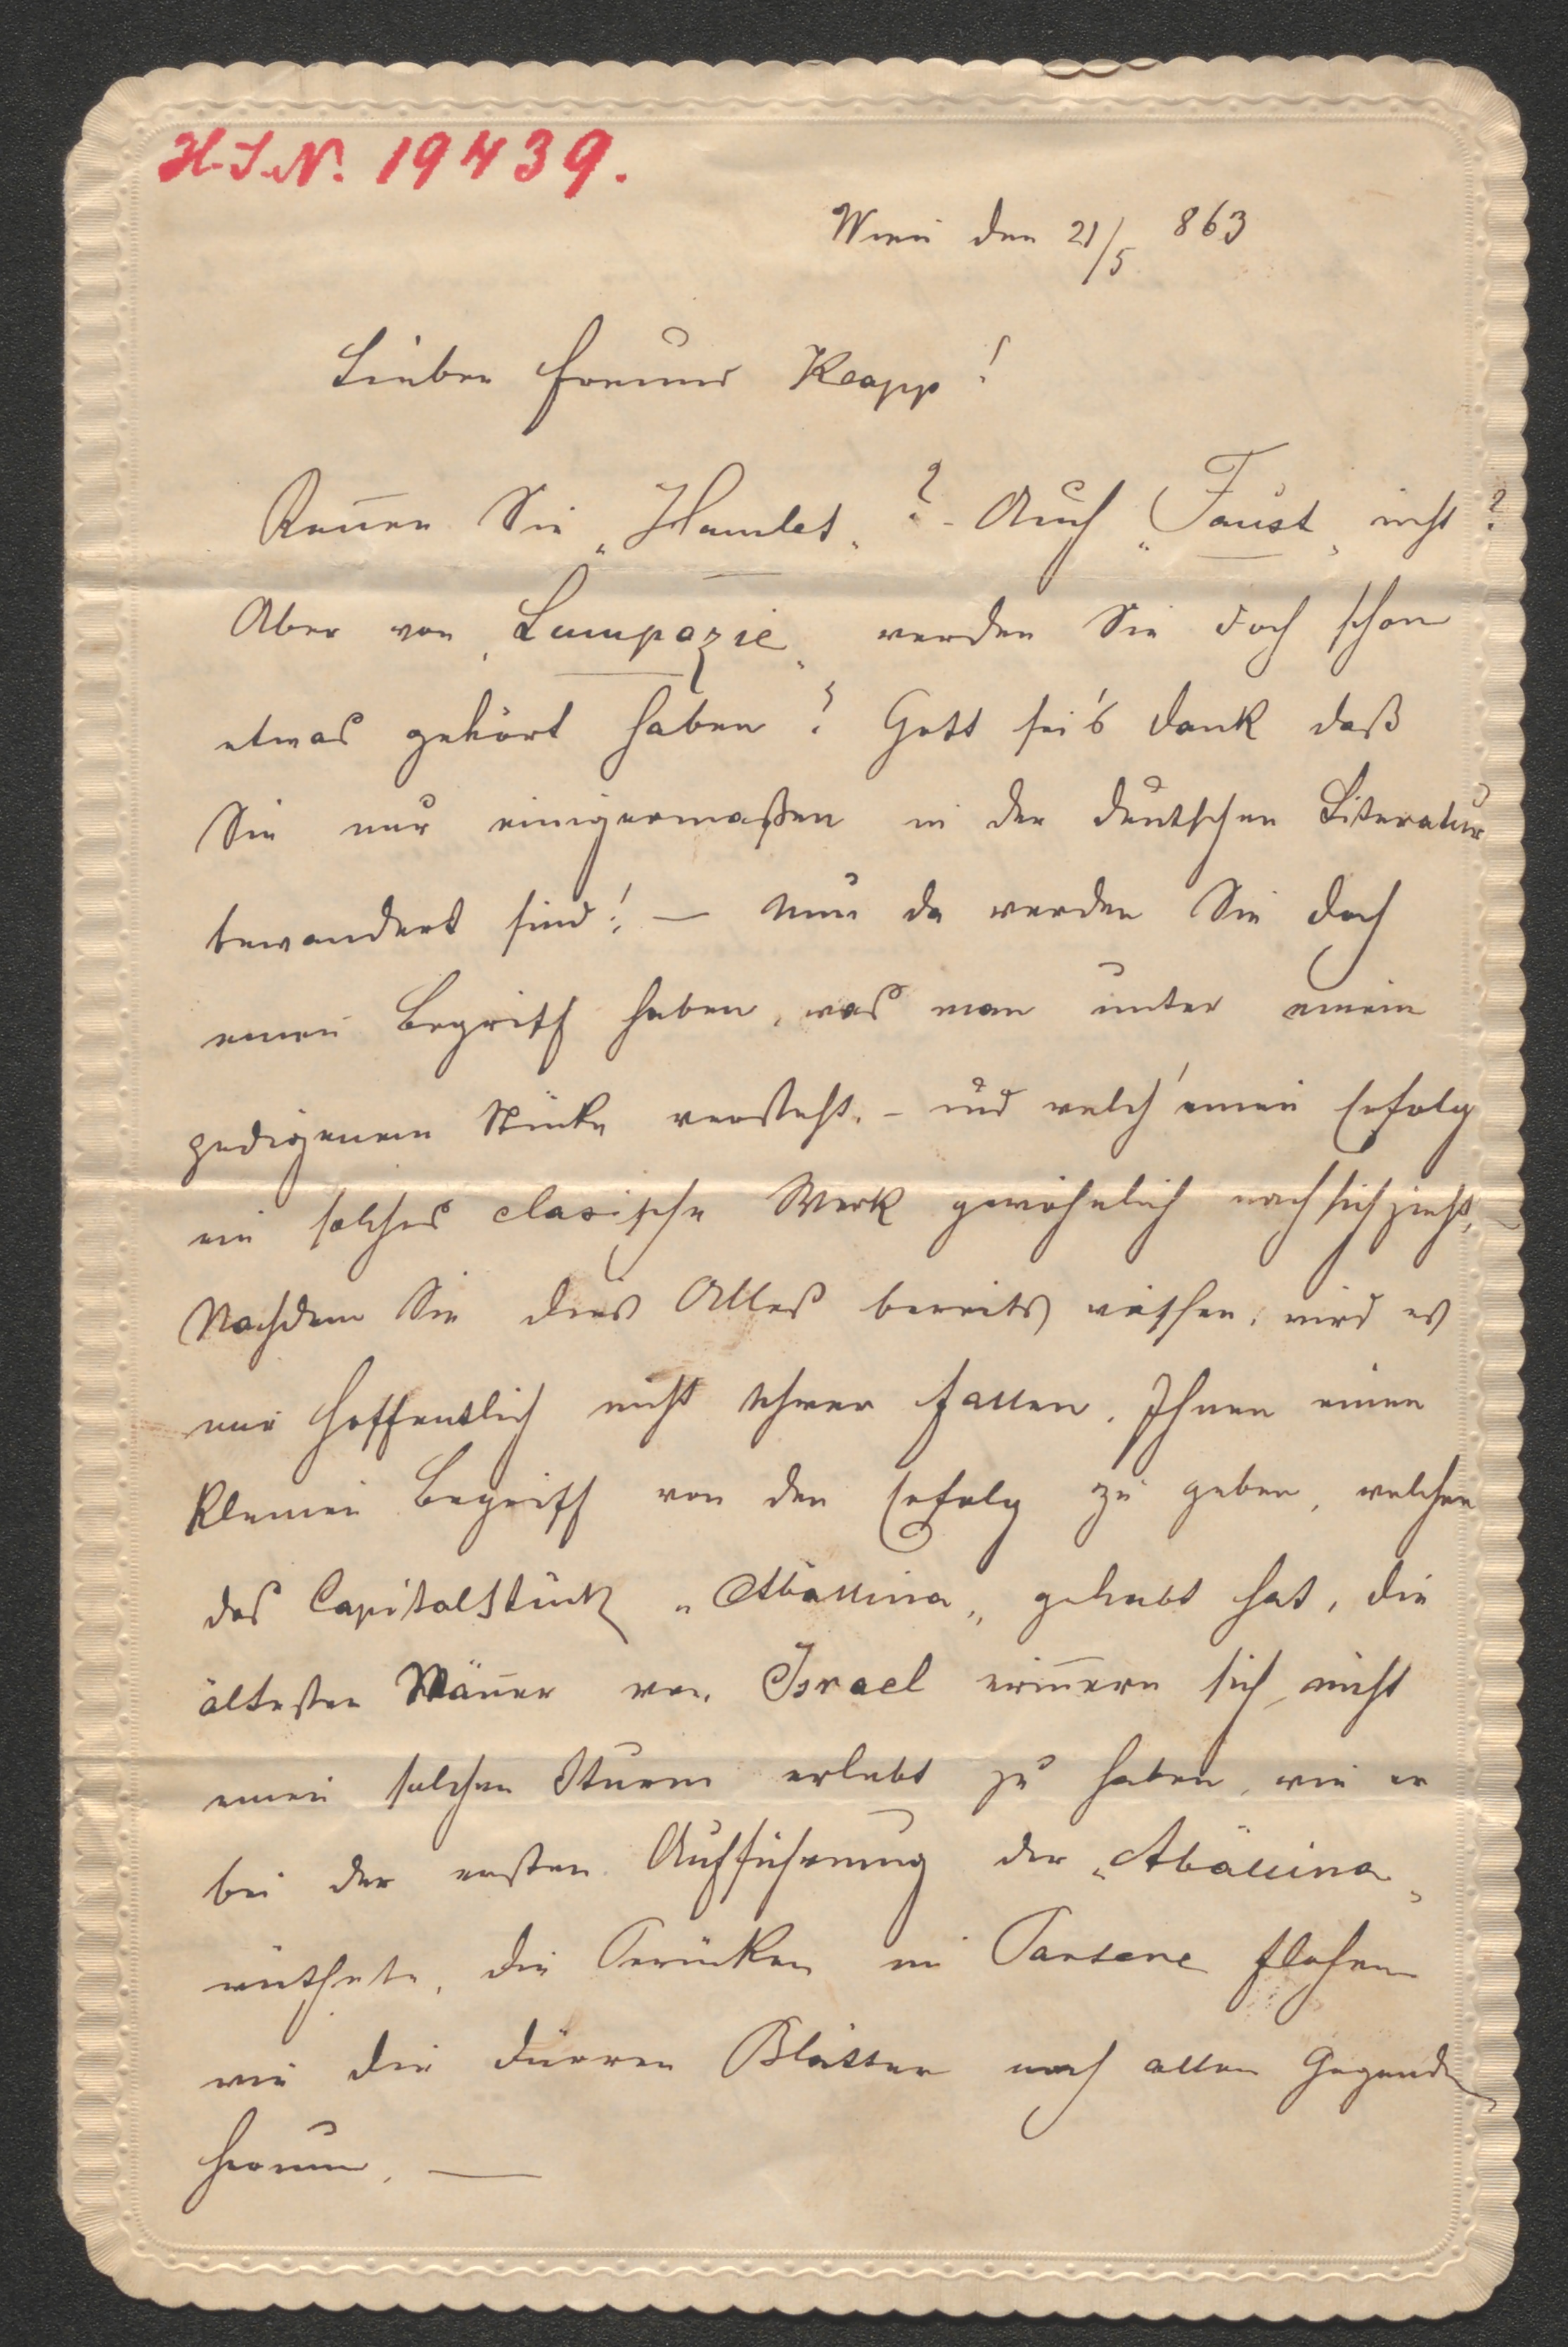 H.I.N. 19439.
Wien den 21/5 863
Lieber Freund Klapp!
Ken̄en Sie „Hamlet„? - Auch „Faust„ nicht?
Aber von „Lumpazie„ werden Sie doch schon
etwas gehört haben? Gott sei's dank daß
Sie nur einigermaßen in der deutschen Literatur
bewandert sind! — Nun da werden Sie doch
einen Begriff haben, was man unter einem
gedigenem Stücke versteht. - und welch' einen Erfolg
ein solches clasische Werk gewöhnlich nach sich zieht,
Nachdem Sie dies Alles bereits wissen, wird es
mir hoffentlich nicht schwer fallen, Ihnen einen
kleinen Begriff von den Erfolg zu geben, welchen
das Capitalstück „Abällina„ gehabt hat, die
ältesten Män̄er von Israel erin̄ern sich nicht
einen solchen Sturm erlebt zu haben, wie er
bei der ersten Aufführung der „Abällina„
wüthete, die Perücken im Parterre flohen
wie die dürren Blätter nach allen Gegenden
herum. —